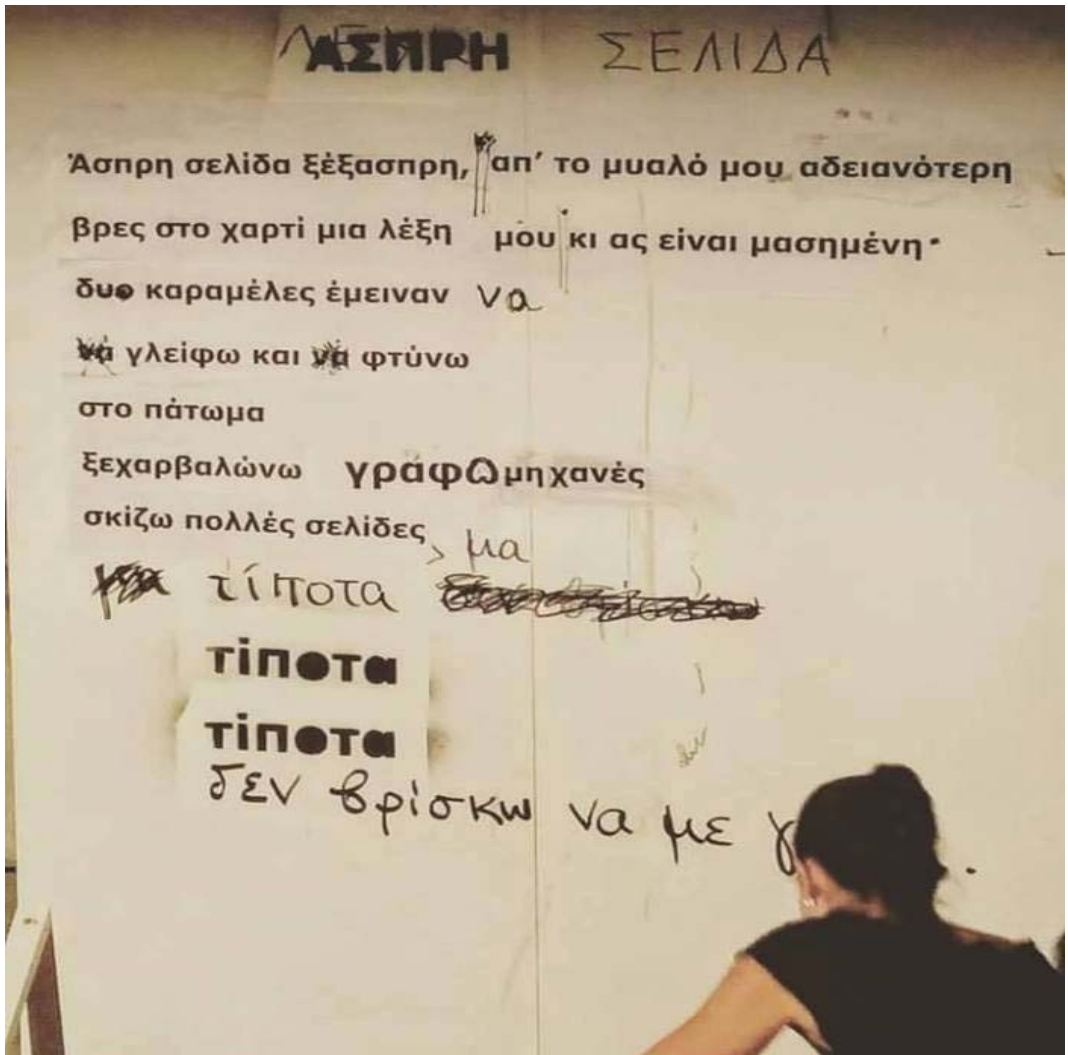 ΑΣΠΡΗ ΣΕΛΙΔΑ
Άσπρη σελίδα ξέξασπρη, απ' το μυαλό μου αδειανότερη
βρες στο χαρτί μια λέξη μου κι ας είναι μασημένη·
δυο καραμέλες έμειναν να
γλείφω και φτύνω
στο πάτωμα
ξεχαρβαλώνω γράφωμηχανές
σκίζω πολλές σελίδες, μα
τίποτα
τίποτα
τίποτα
δεν βρίσκω να με